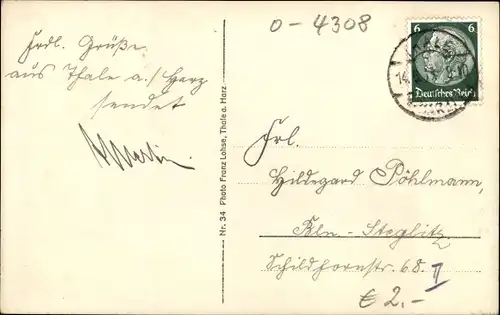 0-4308
Frdl. Grüße
aus Thale a./Harz
sendet
Nr. 34 Photo Franz Lohse, Thale a. Harz
6 6
Deutsches Reich
Frl.
Hildegard Pöhlmann,
Bln.-Steglitz
Schildhornstr. 68. II
€ 2.-